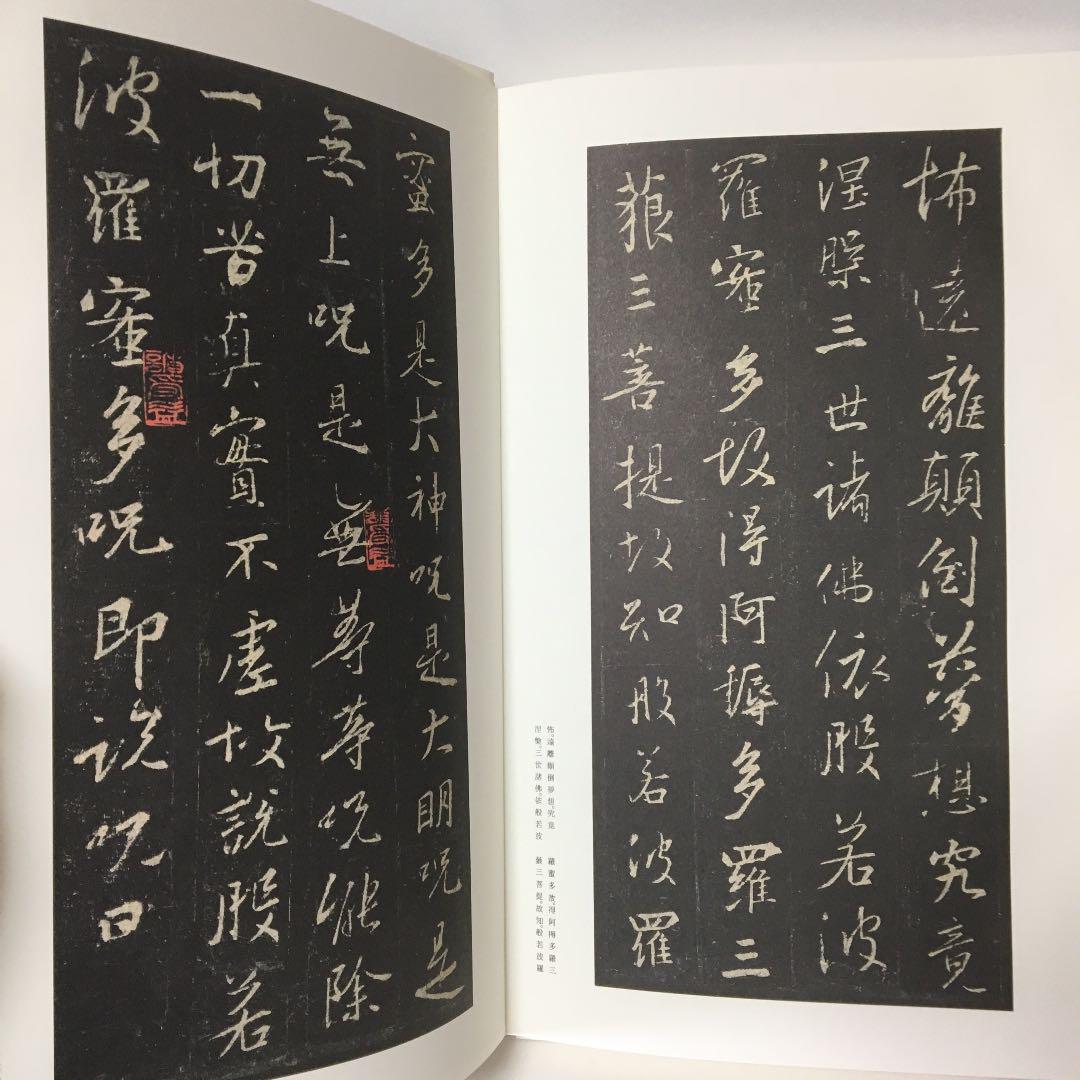 怖遠離顛倒夢想究竟
涅槃三世諸佛依般若波
羅蜜多故得阿耨多羅三
藐三菩提故知般若波羅
怖。遠離顛倒夢想。究竟
涅槃。三世諸佛。依般若波
羅蜜多故。得阿耨多羅三
藐三菩提。故知。般若波羅
蜜多是大神呪是大明呪是
無上呪是無等等呪能除
一切苦真實不虛故說般若
波羅蜜多呪即說呪曰